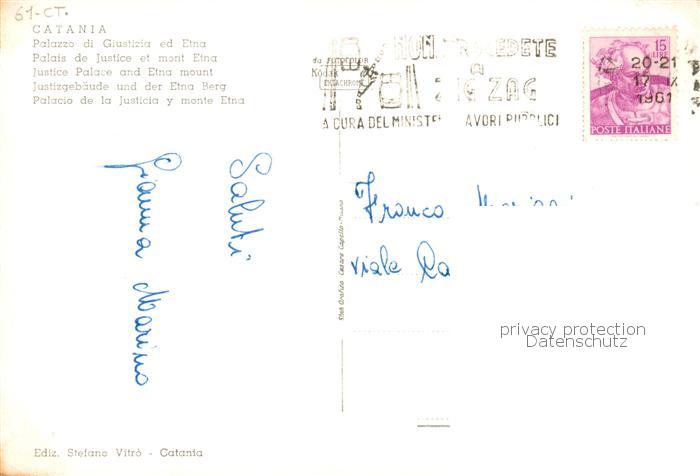 61-CT.
CATANIA
Palazzo di Giustizia ed Etna
Palais de Justice et mont Etna
Justice Palace and Etna mount
Justizgebäude und der Etna Berg
Palacio de la Justicia y monte Etna
da FOTOCOLOR
Kodak
EKTACHROME
NON PROCEDETE
A
ZIG ZAG
A CURA DEL MINISTE AVORI PUBBLICI
15
LIRE
20-21
17 IX
1961
POSTE ITALIANE
Saluti
Gianna Marino
Franco
viale
Stab. Grafico Cesare Capello-Milano
privacy protection
Datenschutz
Ediz. Stefano Vitrò - Catania